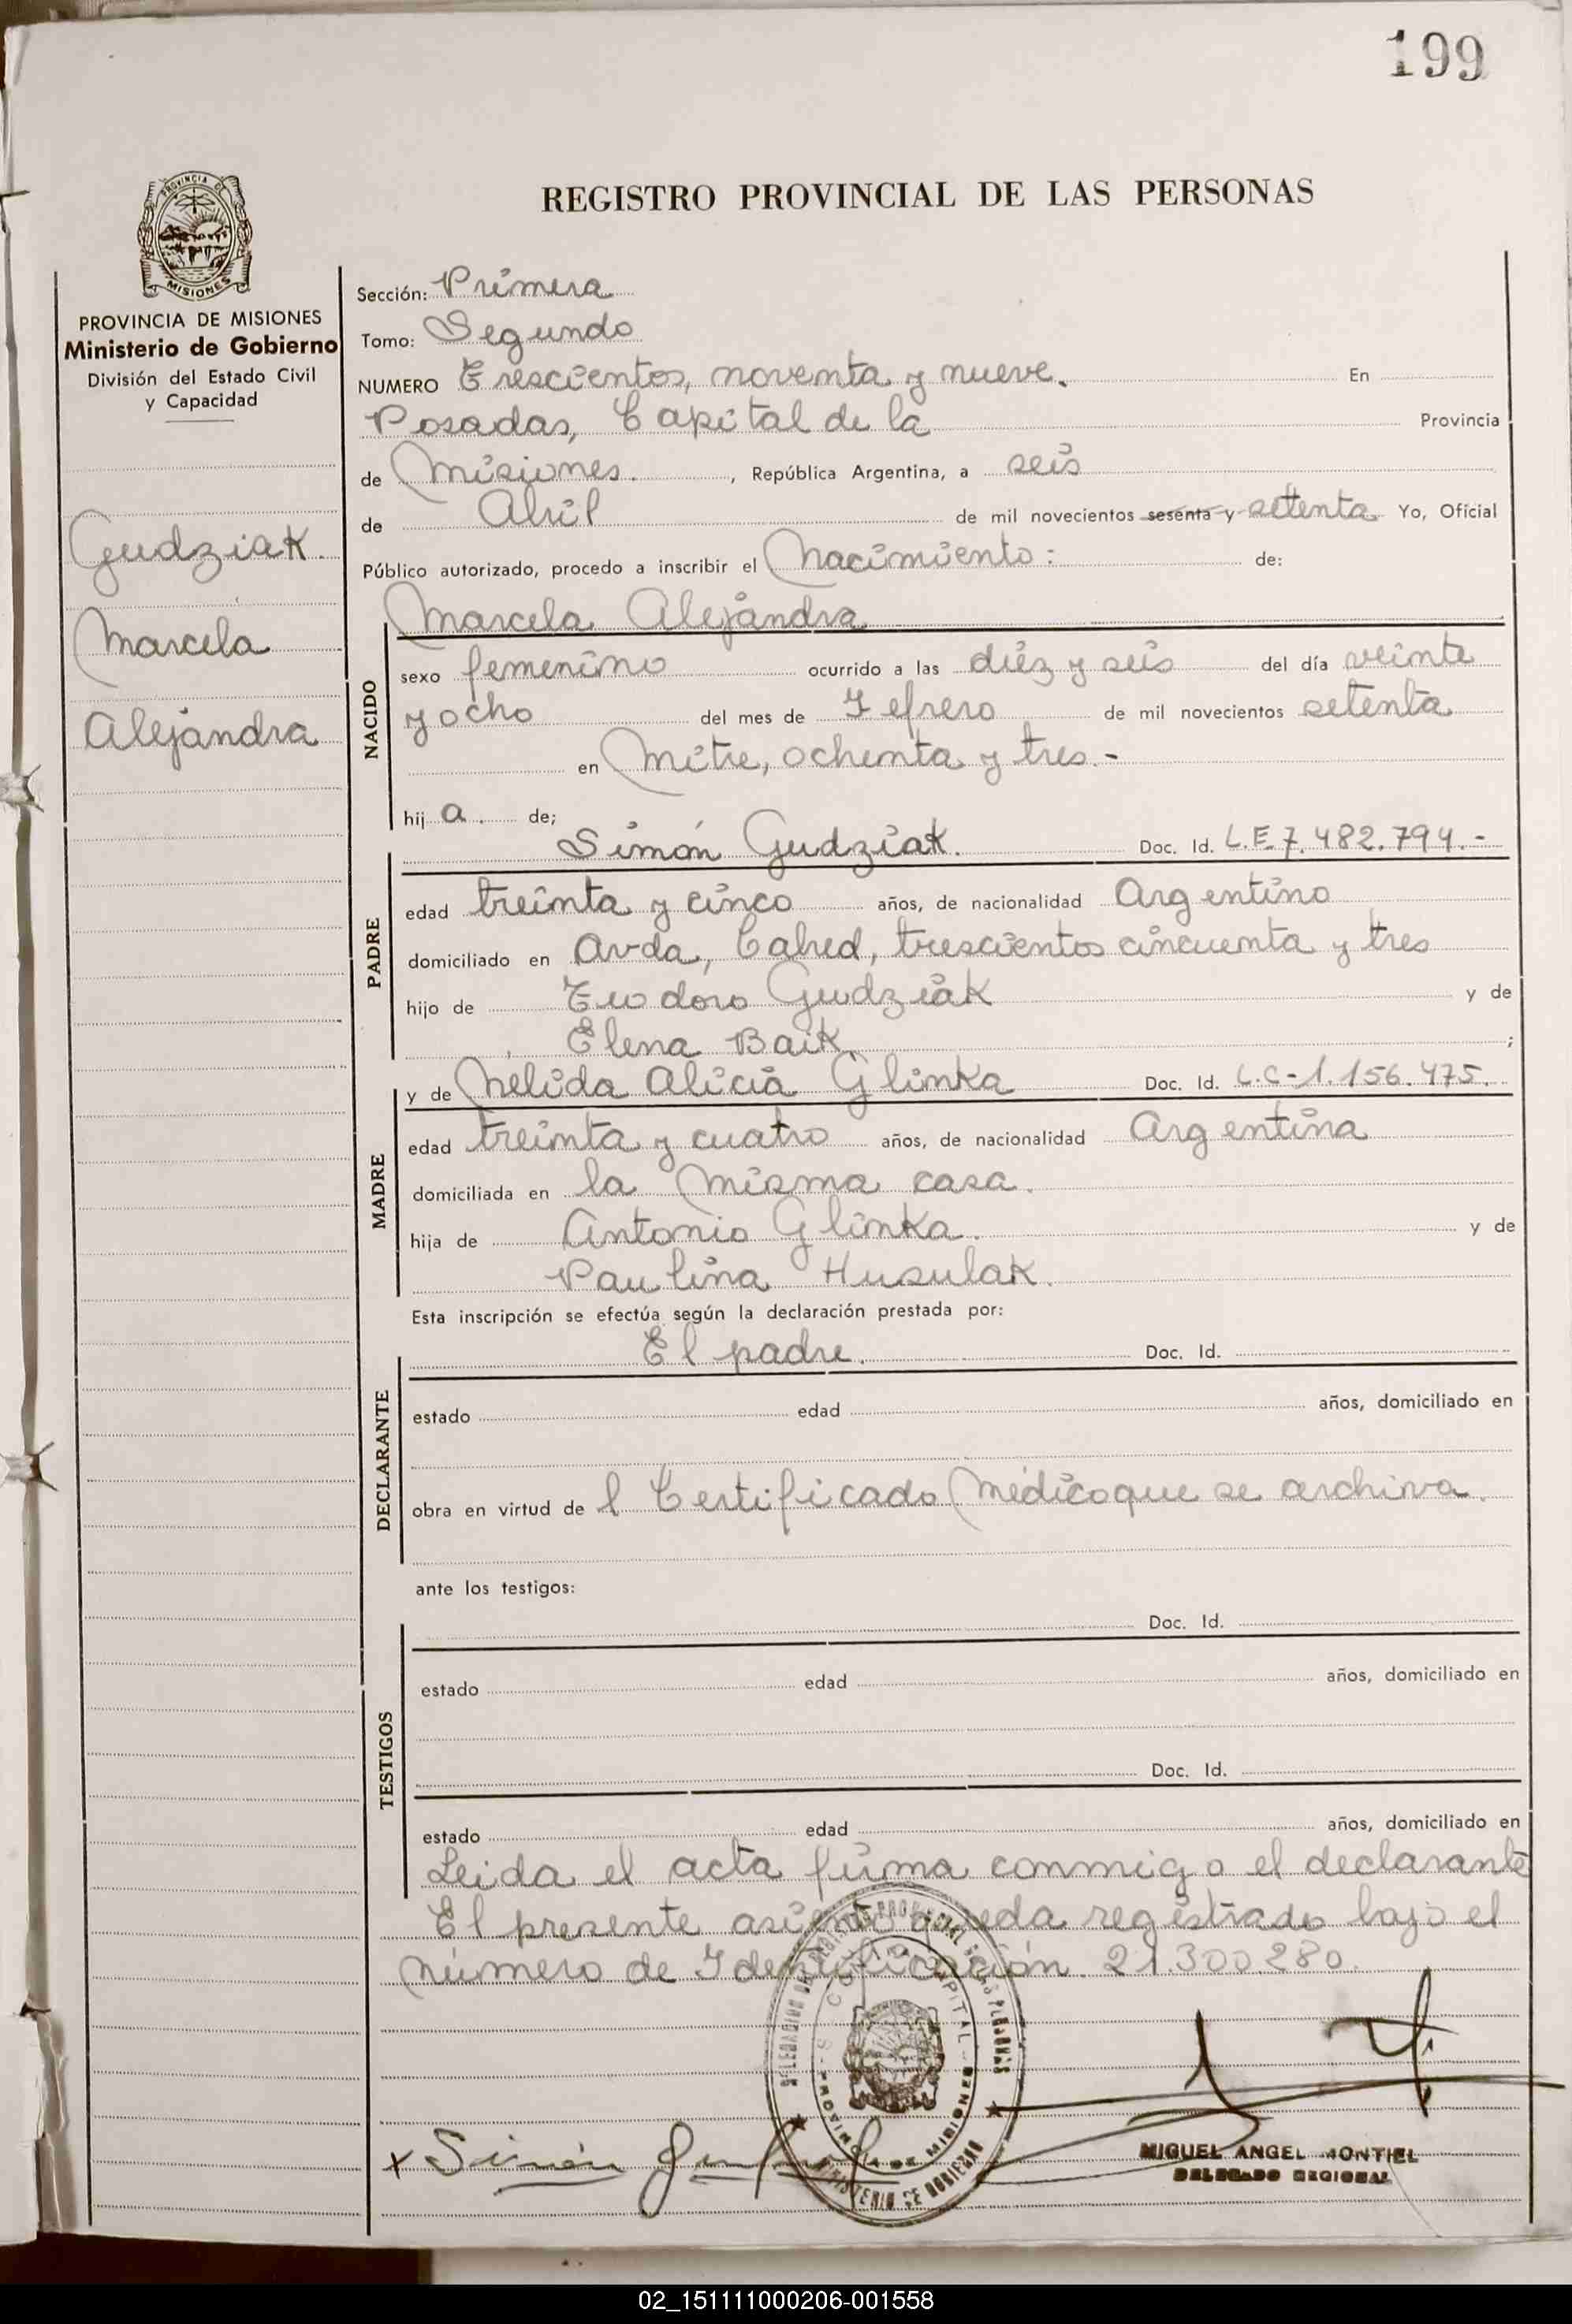 199
REGISTRO PROVINCIAL DE LAS PERSONAS
PROVINCIA DE
MISIONES
PROVINCIA DE MISIONES
Ministerio de Gobierno
División del Estado Civil
y Capacidad
Gudziak.
Marcela
Alejandra
Sección: Primera
Tomo: Segundo
NUMERO Trescientos, noventa y nueve. En
Posadas, Capital de la Provincia
de Misiones. , República Argentina, a seis
de Abril de mil novecientos sesenta y setenta Yo, Oficial
Público autorizado, procedo a inscribir el Nacimiento: de:
Marcela Alejandra
NACIDO
sexo femenino ocurrido a las diéz y seis del día veinte
y ocho del mes de Fefrero de mil novecientos setenta
en Mitre, ochenta y tres.-
hij a. de;
Simón Gudziak. Doc. Id. L.E.7.482.794.-
PADRE
edad treinta y cinco años, de nacionalidad Argentino
domiciliado en Avda, Cabred, trescientos cincuenta y tres
hijo de Teodoro Gudziak y de
Elena Baik. ;
y de Nelida Alicia Glinka Doc. Id. L.C-1.156.475.
MADRE
edad treinta y cuatro años, de nacionalidad Argentina
domiciliada en la misma casa.
hija de Antonio Glinka. y de
Paulina Husulak.
Esta inscripción se efectúa según la declaración prestada por:
El padre. Doc. Id.
DECLARANTE
estado edad años, domiciliado en
obra en virtud de l Certificado Médico que se archiva.
ante los testigos:
Doc. Id.
TESTIGOS
estado edad años, domiciliado en
Doc. Id.
estado edad años, domiciliado en
Leida el acta firma conmigo el declarante
El presente asiento queda registrado bajo el
número de Identificación 21.300280.
PROVINCIA DE MISIONES
MINISTERIO DE GOBIERNO
x Simón
MIGUEL ANGEL MONTIEL
DELEGADO REGIONAL
02_151111000206-001558